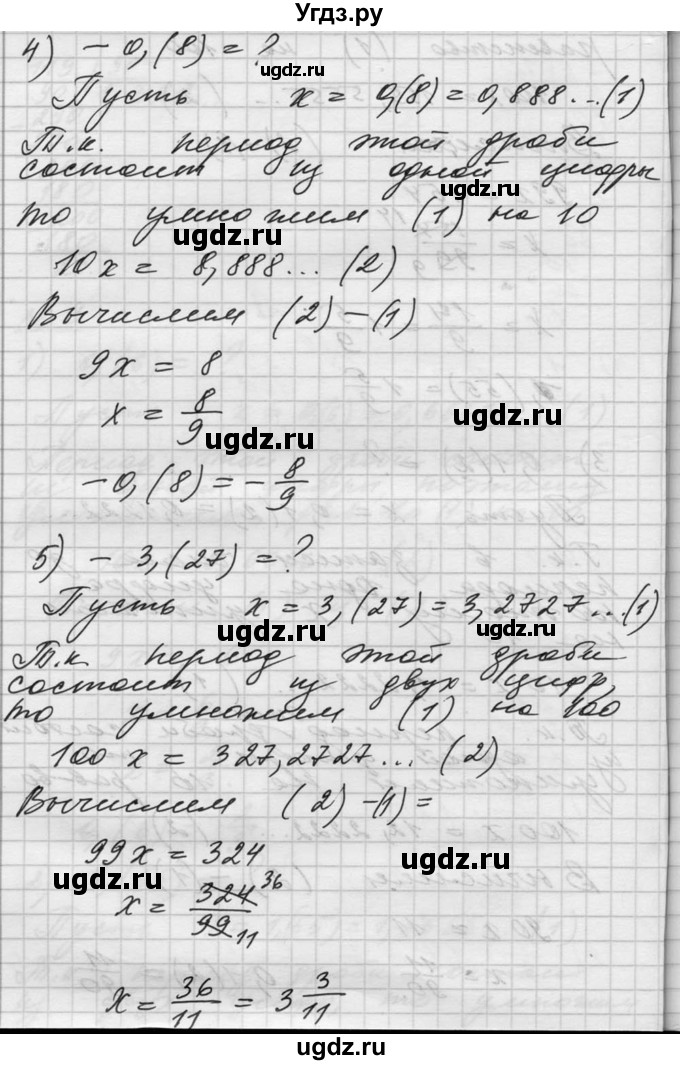 Угдз.ру
4) − 0,(8) = ?
Пусть x = 0,(8) = 0,888... (1)
Т.к. период этой дроби
состоит из одной цифры
ugdz.ru
то умножим (1) на 10
ugdz.ru
10x = 8,888... (2)
ugdz.ru
Вычислим (2) − (1)
9x = 8
x = 8/9
ugdz.ru
ugdz.ru
− 0,(8) = − 8/9
5) − 3,(27) = ?
Пусть x = 3,(27) = 3,2727... (1)
ugdz.ru
ugdz.ru
Т.к. период этой дроби
состоит из двух цифр,
то умножим (1) на 100
100 x = 327,2727... (2)
Вычислим (2) − (1) =
99x = 324
ugdz.ru
ugdz.ru
x = 324/99 36 11
x = 36/11 = 3 3/11
ugdz.ru